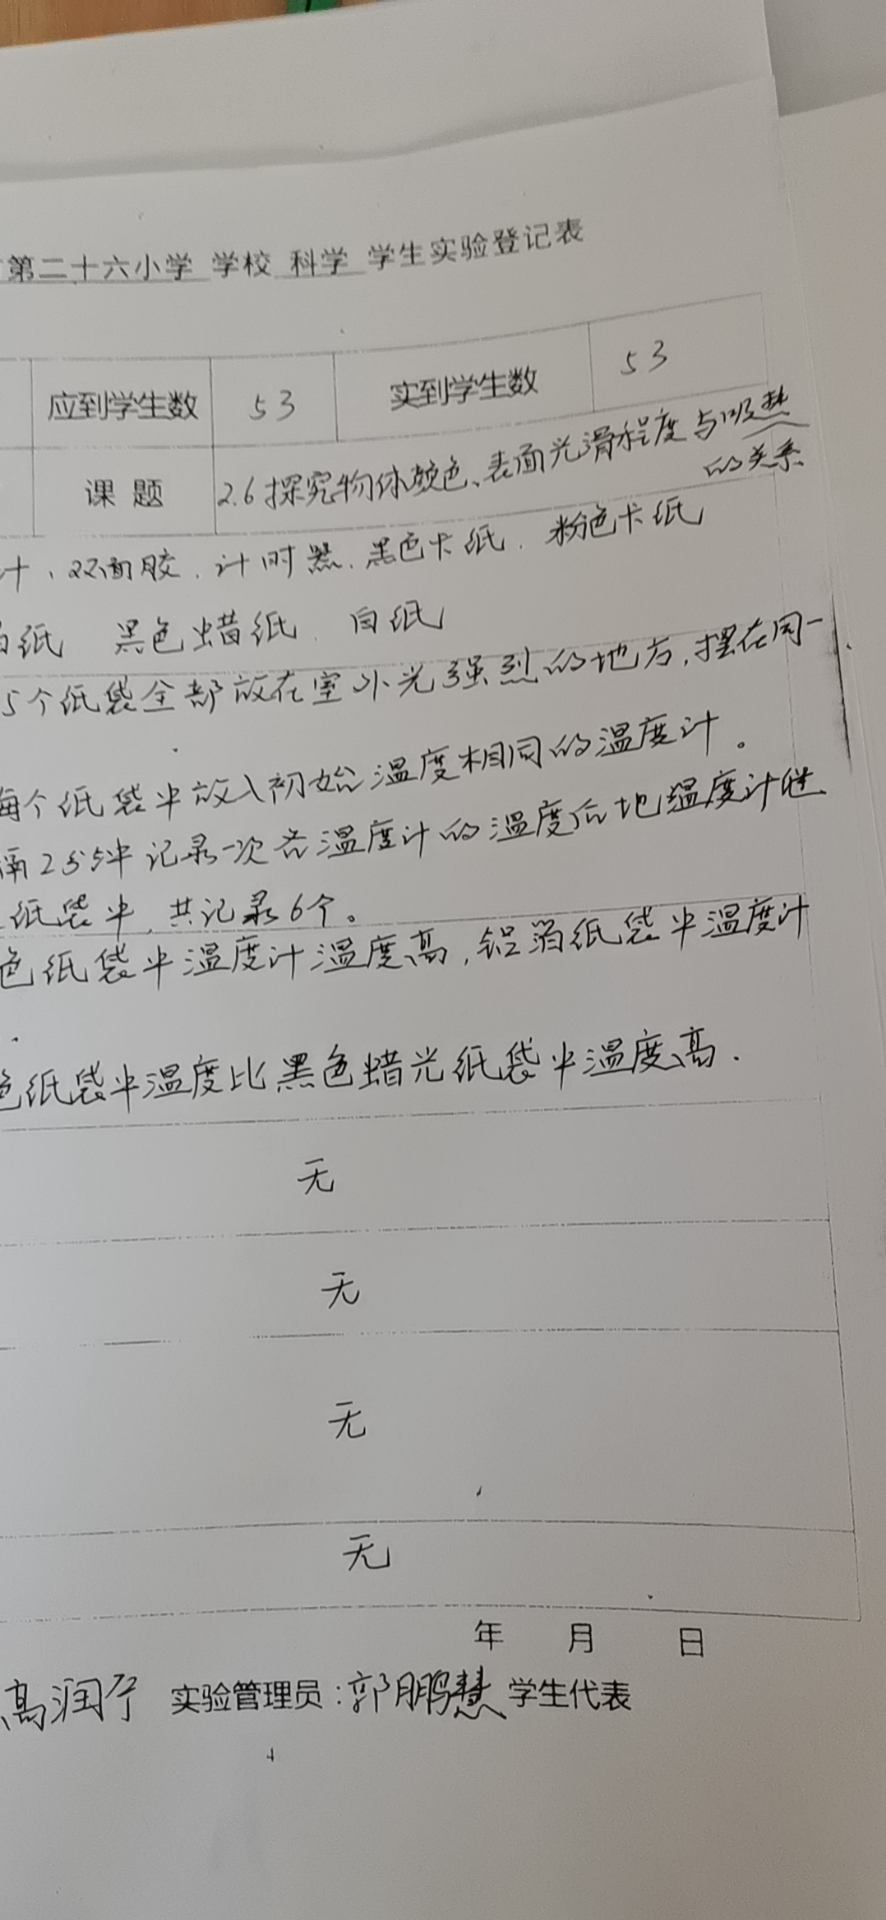 第二十六小学 学校 科学 学生实验登记表
应到学生数 53 实到学生数 53
课题 2.6探究物体颜色、表面光滑程度与吸热
的关系
计、双面胶、计时器、黑色卡纸、粉色卡纸
纸 黑色蜡纸、白纸
5个纸袋全部放在室外光强烈的地方,摆在同一
每个纸袋中放入初始温度相同的温度计。
隔2分钟记录一次各温度计的温度
纸袋中,共记录6个。
色纸袋中温度计温度高,铝箔纸袋中温度计
色纸袋中温度比黑色蜡光纸袋中温度高.
无
无
无
无
年 月 日
高润宁 实验管理员:郭鹏慧 学生代表